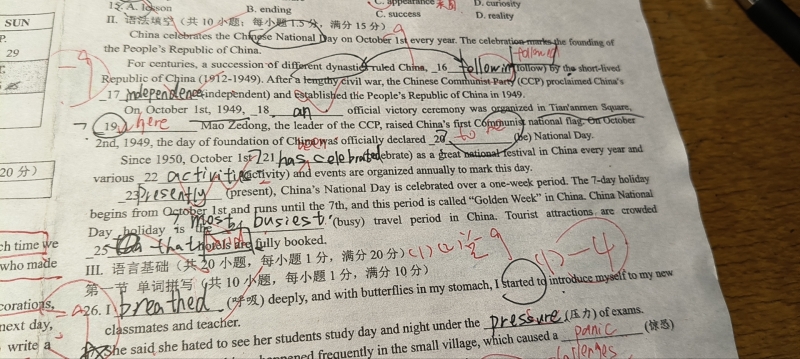 SUN
P.
29
20分）
ch time we
who made
corations,
next day,
write a
A. lesson B. ending C. appearance D. curiosity
C. success D. reality
II. 语法填空（共 10 小题；每小题 1.5 分，满分 15 分）
China celebrates the Chinese National Day on October 1st every year. The celebration marks the founding of
the People's Republic of China.
For centuries, a succession of different dynasties ruled China, 16 following (follow) by the short-lived
following
Republic of China (1912-1949). After a lengthy civil war, the Chinese Communist Party (CCP) proclaimed China's
17 independence (independent) and established the People's Republic of China in 1949.
On October 1st, 1949, 18 an official victory ceremony was organized in Tian'anmen Square,
19 where Mao Zedong, the leader of the CCP, raised China's first Communist national flag. On October
2nd, 1949, the day of foundation of China was officially declared 20 to be (be) National Day.
Since 1950, October 1st 21 has celebrated (celebrate) as a great national festival in China every year and
been
various 22 activities (activity) and events are organized annually to mark this day.
23 presently (present), China's National Day is celebrated over a one-week period. The 7-day holiday
begins from October 1st and runs until the 7th, and this period is called "Golden Week" in China. China National
Day holiday is the most busiest (busy) travel period in China. Tourist attractions are crowded
25 that hotels are fully booked.
III. 语言基础（共 30 小题，每小题 1 分，满分 20 分）
第一节 单词拼写（共 10 小题，每小题 1 分，满分 10 分）
26. I breathed (呼吸) deeply, and with butterflies in my stomach, I started to introduce myself to my new
classmates and teacher.
She said she hated to see her students study day and night under the pressure (压力) of exams.
frequently in the small village, which caused a panic (惊恐)